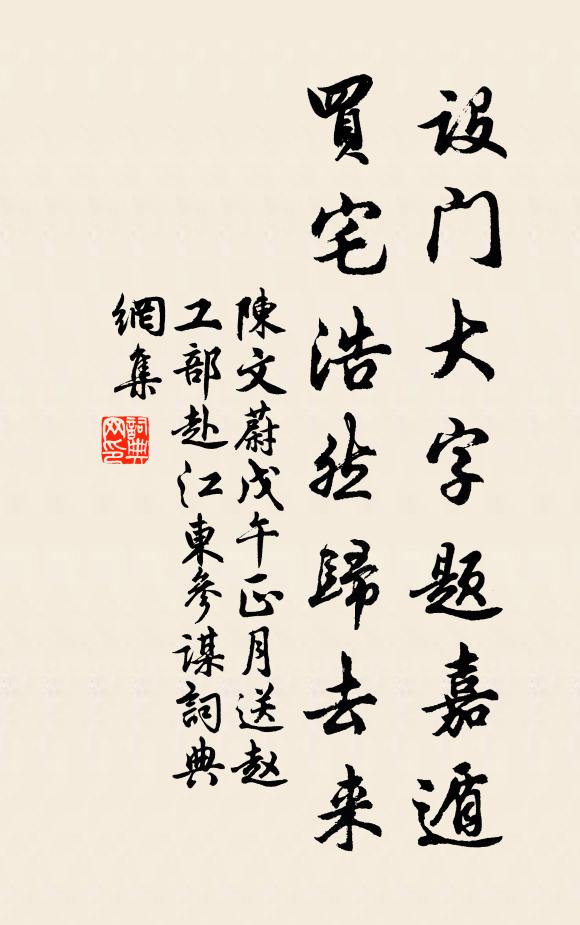 設门大字题嘉遁
買宅浩然歸去来
陳文蔚戊午正月送赵
工部赴江東參谋詞典
網集
詞典網印